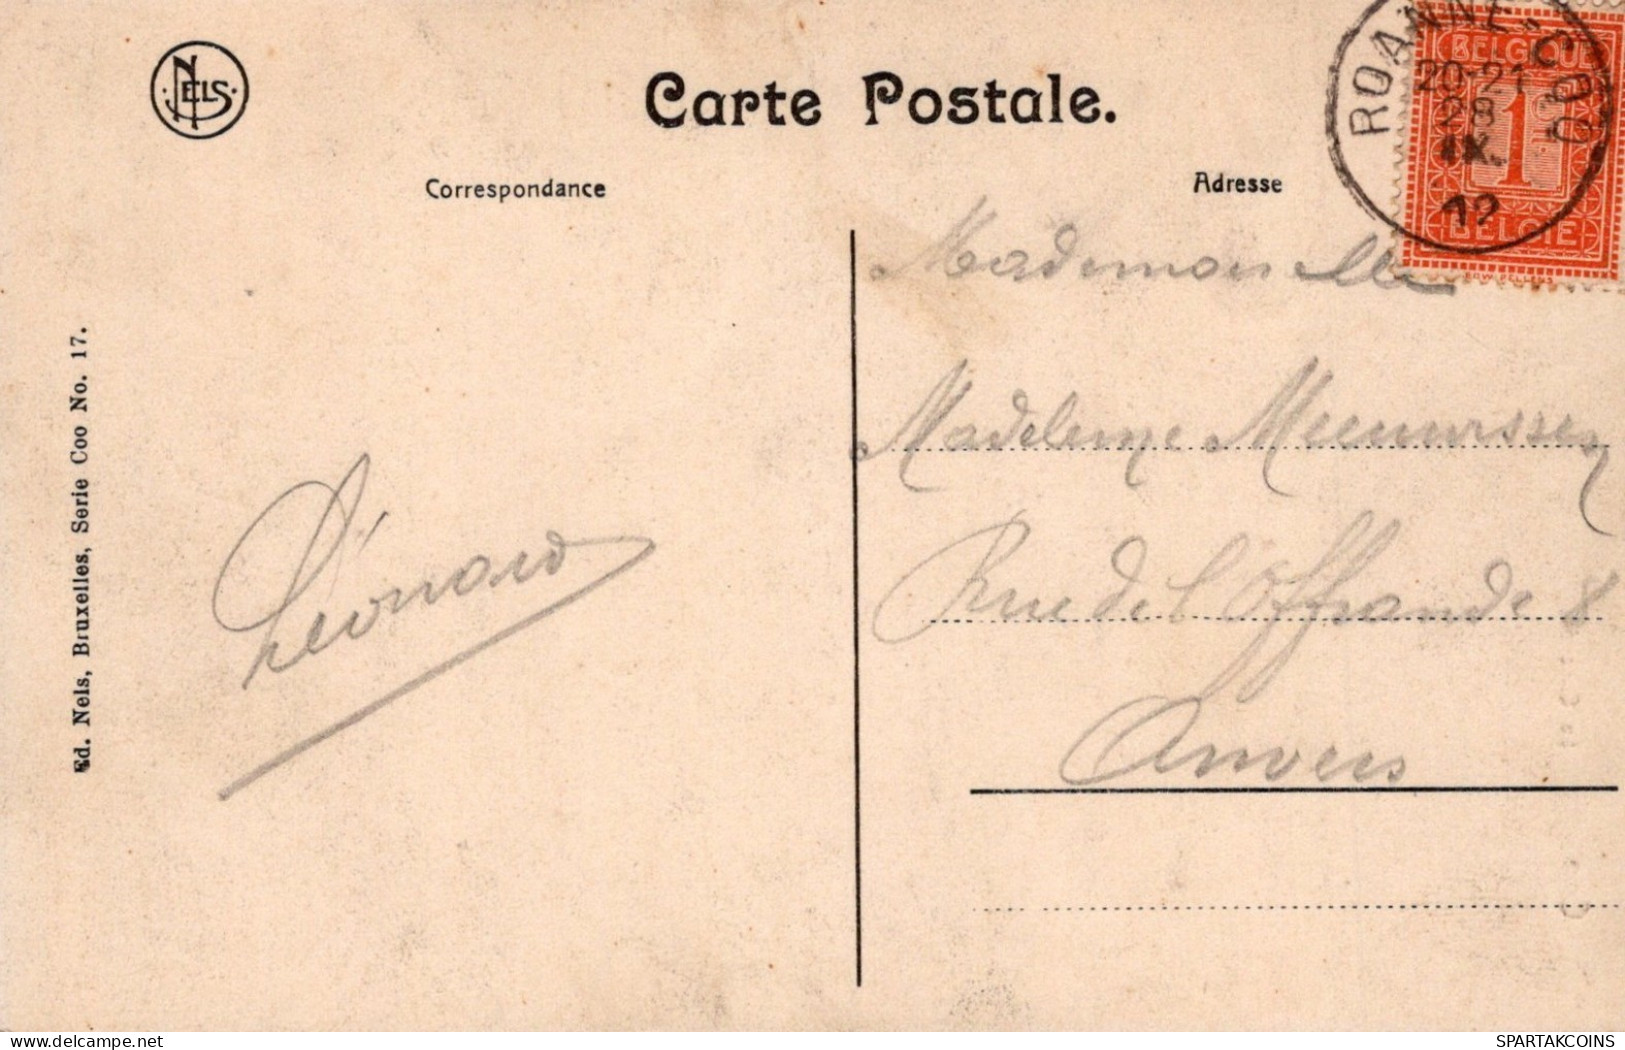 NELS
Carte Postale.
Correspondance
Adresse
ROANNE-COO
20-21
28
IX.
12
BELGIQUE
1
BELGIE
Mademoiselle
Madeleine
Rue de l'Offrande 8
Anvers
Léonard
Ed. Nels, Bruxelles, Serie Coo No. 17.
SPARTAKCOINS